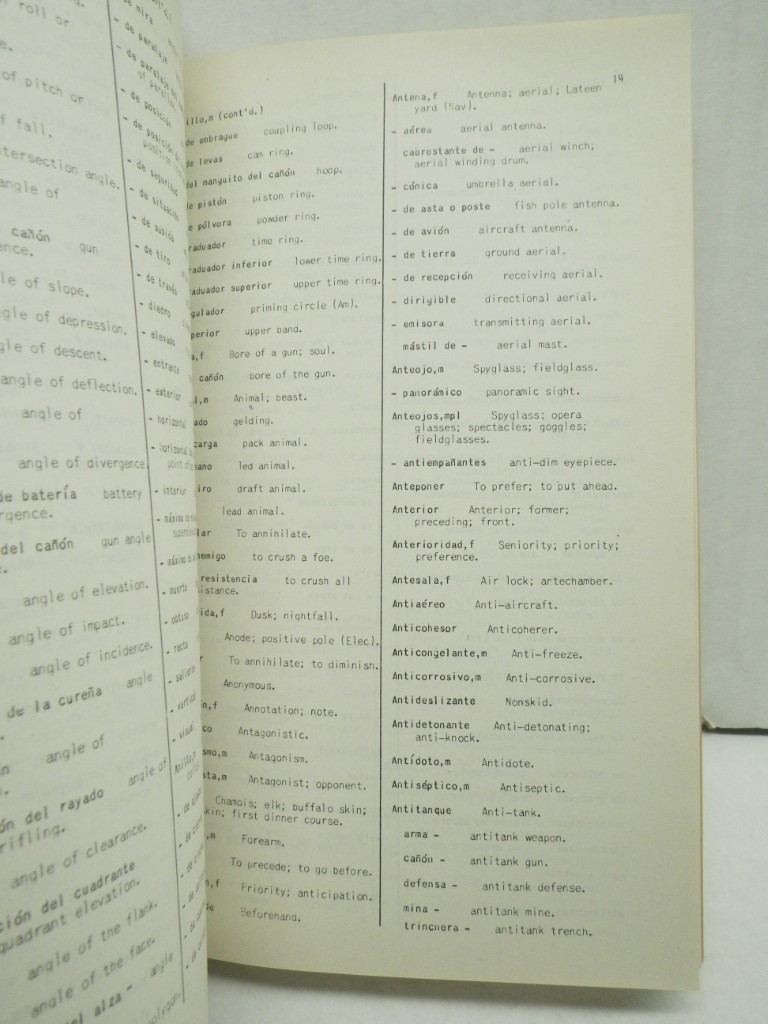 roll or
e.
of pitch or
of fall.
ntersection angle.
angle of
cañón gun
ence.
le of slope.
gle of depression.
gle of descent.
angle of deflection.
angle of
angle of divergence.
de batería battery
rgence.
del cañón gun angle
angle of elevation.
angle of impact.
angle of incidence.
de la cureña angle
angle of
ón del rayado angle of
rifling.
angle of clearance.
ción del cuadrante
quadrant elevation.
angle of the flank.
angle of the face.
del alza - angle
- de mira
- de paralaje
- de paralaje del
- de posición
- de posición
- de seguridad
- de situación
- de tiro
- diedro
- elevado
- entrante
- exterior
- horizontal
- horizontal
- interior
- muerto
- obtuso
- recto
- saliente
- vertical
- visual
14
illo,m (cont'd.)
de embrague coupling loop.
de levas cam ring.
del manguito del cañón hoop.
de pistón piston ring.
e pólvora powder ring.
raduador time ring.
raduador inferior lower time ring.
raduador superior upper time ring.
gulador priming circle (Am).
perior upper band.
a,f Bore of a gun; soul.
cañón bore of the gun.
l,m Animal; beast.
ado gelding.
carga pack animal.
mano led animal.
iro draft animal.
lead animal.
lar To annihilate.
nemigo to crush a foe.
resistencia to crush all
istance.
ida,f Dusk; nightfall.
Anode; positive pole (Elec).
r To annihilate; to diminish.
Anonymous.
ón,f Annotation; note.
co Antagonistic.
smo,m Antagonism.
sta,m Antagonist; opponent.
Chamois; elk; buffalo skin;
skin; first dinner course.
,m Forearm.
To precede; to go before.
n,f Priority; anticipation.
de Beforehand.
Antena,f Antenna; aerial; Lateen
yard (Nav).
- aérea aerial antenna.
cabrestante de - aerial winch;
aerial winding drum.
- cónica umbrella aerial.
- de asta o poste fish pole antenna.
- de avión aircraft antenna.
- de tierra ground aerial.
- de recepción receiving aerial.
- dirigible directional aerial.
- emisora transmitting aerial.
mástil de - aerial mast.
Anteojo,m Spyglass; fieldglass.
- panorámico panoramic sight.
Anteojos,mpl Spyglass; opera
glasses; spectacles; goggles;
fieldglasses.
- antiempañantes anti-dim eyepiece.
Anteponer To prefer; to put ahead.
Anterior Anterior; former;
preceding; front.
Anterioridad,f Seniority; priority;
preference.
Antesala,f Air lock; antechamber.
Antiaéreo Anti-aircraft.
Anticohesor Anticoherer.
Anticongelante,m Anti-freeze.
Anticorrosivo,m Anti-corrosive.
Antideslizante Nonskid.
Antidetonante Anti-detonating;
anti-knock.
Antídoto,m Antidote.
Antiséptico,m Antiseptic.
Antitanque Anti-tank.
arma - antitank weapon.
cañón - antitank gun.
defensa - antitank defense.
mina - antitank mine.
trinchera - antitank trench.